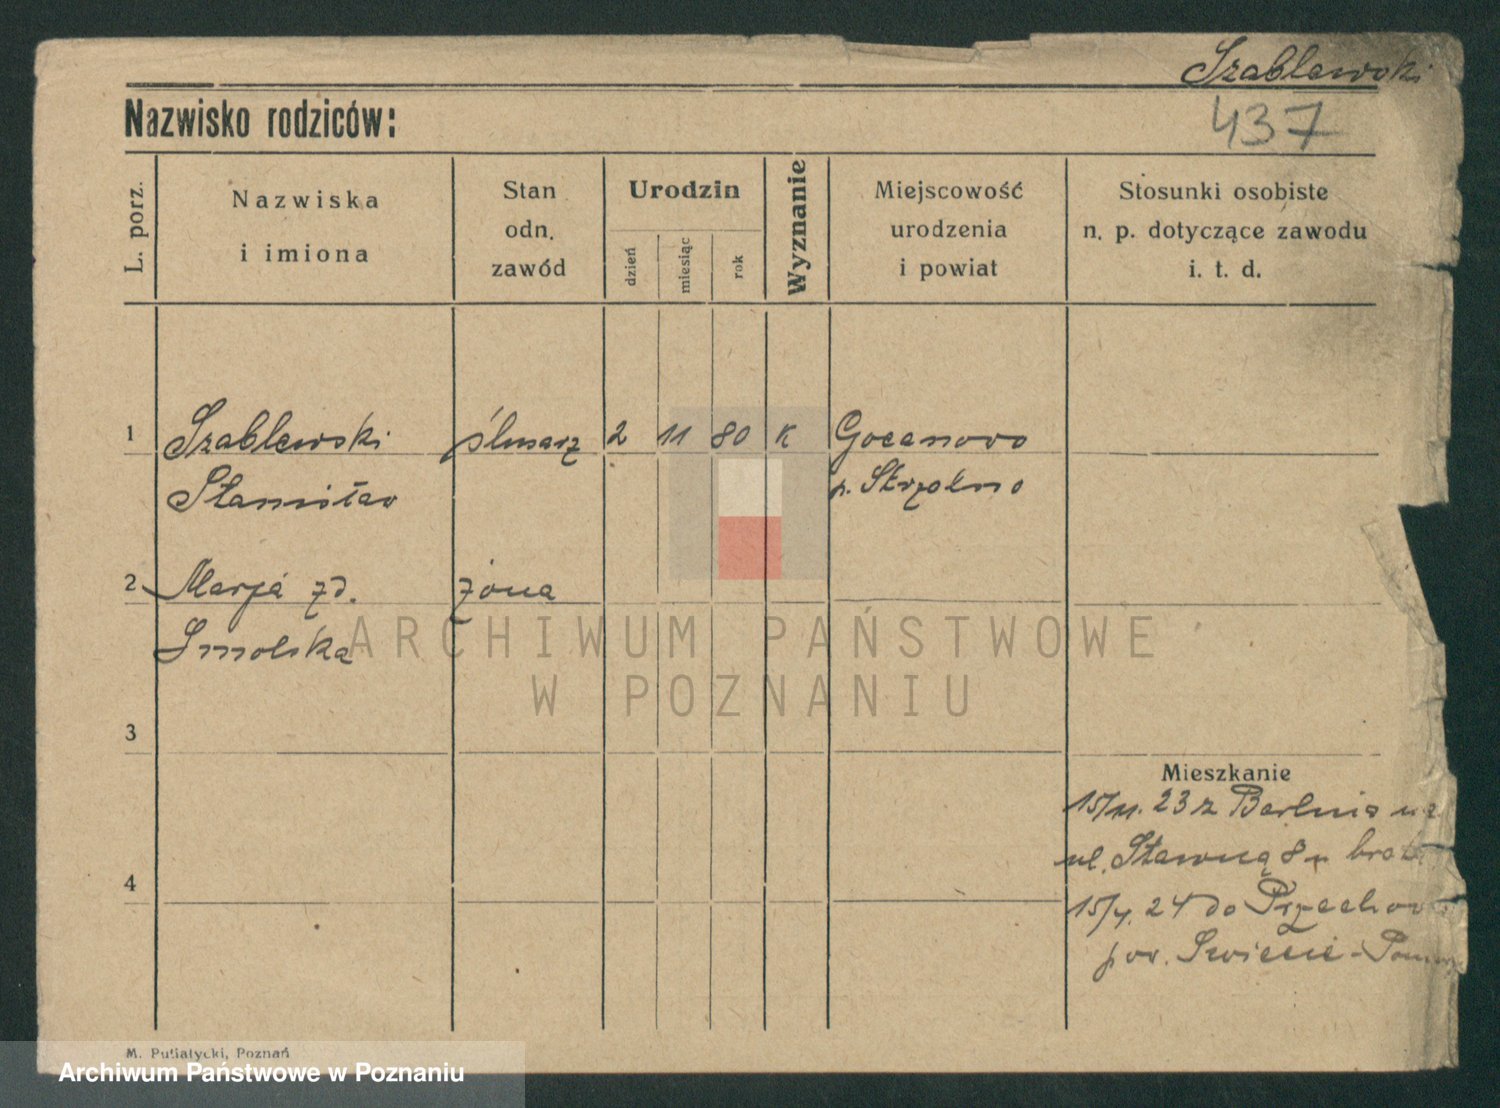 Szablewski
Nazwisko rodziców:
437
L. porz.
Nazwiska
i imiona
Stan
odn.
zawód
Urodzin
dzień
miesiąc
rok
Wyznanie
Miejscowość
urodzenia
i powiat
Stosunki osobiste
n. p. dotyczące zawodu
i. t. d.
1 Szablewski ślusarz 2 11 80 K Gocanowo
Stanisław p. Strzelno
2 Marja zd. żona
Smolska
ARCHIWUM PAŃSTWOWE
W POZNANIU
3
Mieszkanie
15/11. 23 z Berlina na
ul. Stawną 8 u brata
4
15/4. 24 do Przechowa
pow. Świecie - Pomorze
M. Putiatycki, Poznań
Archiwum Państwowe w Poznaniu